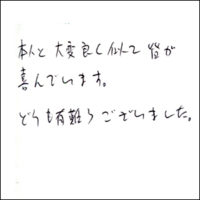 本人と大変良く似て皆が
喜んでいます。
どうも有難うございました。